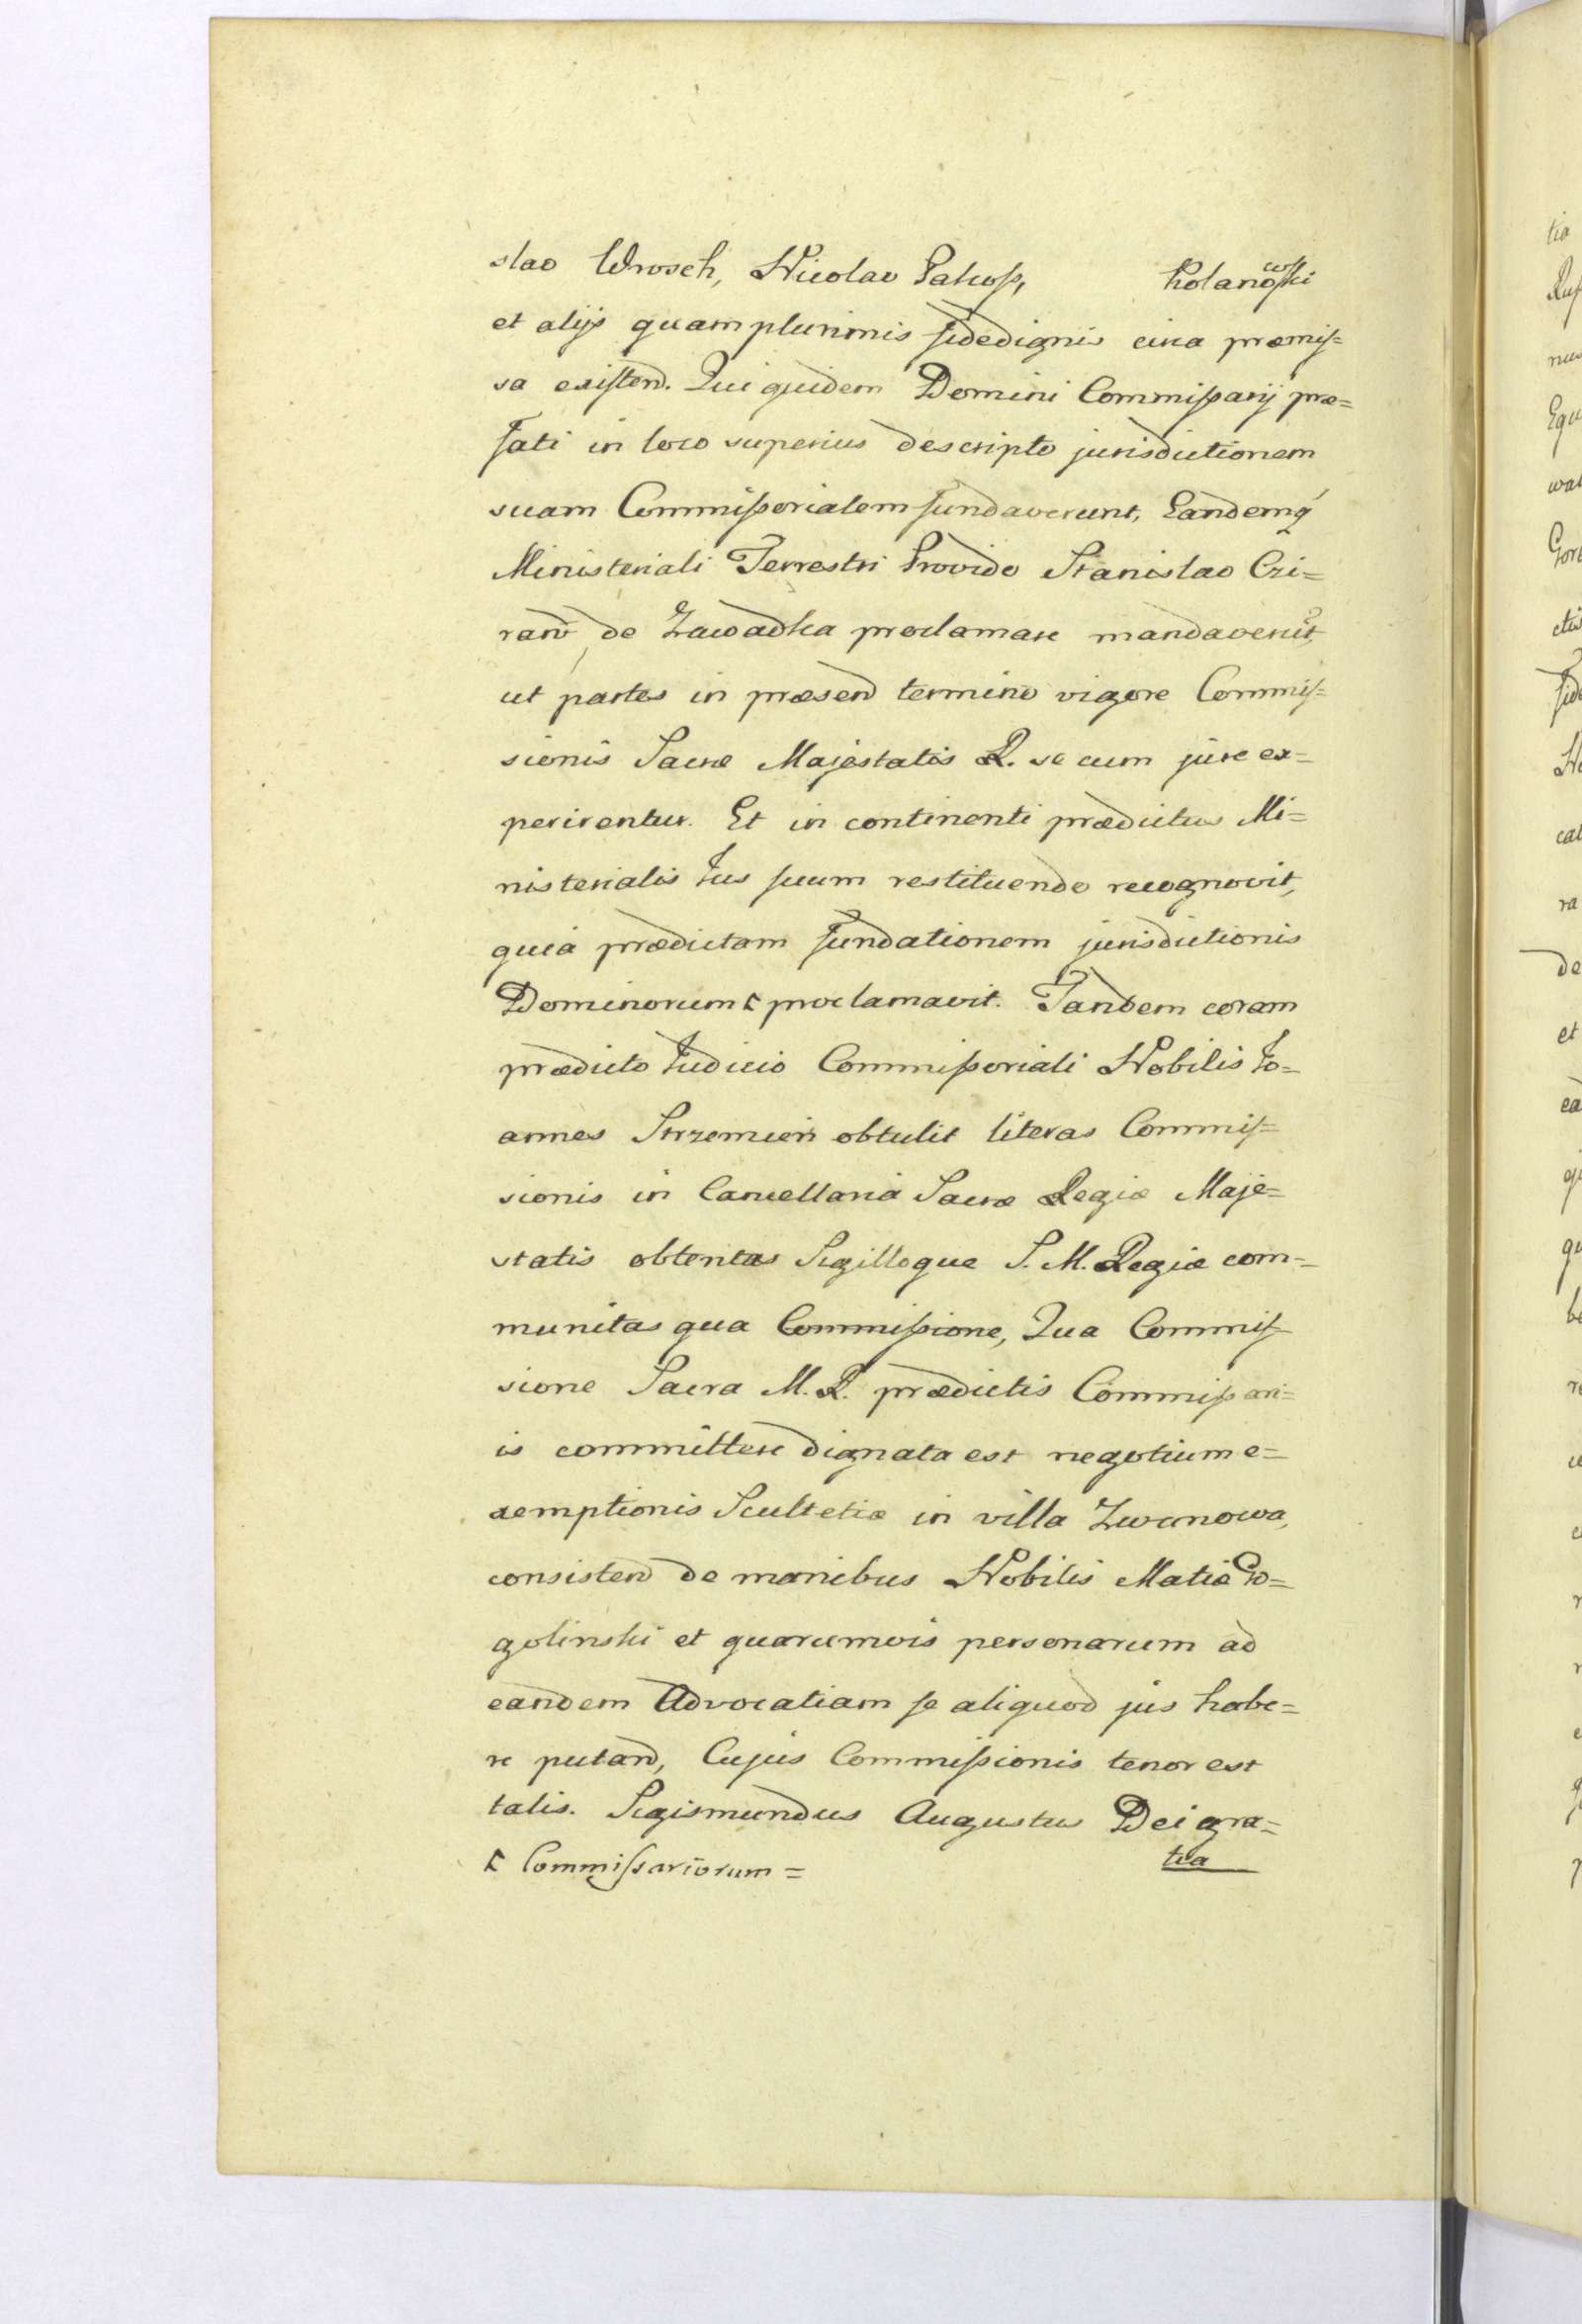 slao Wrosch, Nicolao Pakosz, Kolanowski
et alijs quamplurimis fidedignis circa præmis=
sa existen̄. Qui quidem Domini Commissarij præ=
fati in loco superius descripto jurisdictionem
suam Commissorialem fundaverunt, Eandemq́
Ministeriali Terrestri Provido Stanislao Czi=
ran̄ de Zawadka proclamare mandaverūt,
ut partes in præsen̄ termino vigore Commis=
sionis Sacræ Majestatis R. se cum jure ex=
perirentur. Et in continenti prædictus Mi=
nisterialis Jus suum restituendo recognovit,
quia prædictam fundationem jurisdictionis
Dominorum proclamavit. Tandem coram
prædicto Judicio Commissoriali Nobilis Jo=
annes Strzemien obtulit literas Commis=
sionis in Cancellaria Sacræ Regiæ Maje=
statis obtentas Sigilloque S. M. Regiæ com=
munitas qua Commissione, Qua Commis=
sione Sacra M. R. prædictis Commissari=
is committere dignata est negotium e=
xemptionis Scultetiæ in villa Zwanowa,
consisten̄ de manibus Nobilis Matiæ Ro=
golinski et quarumvis personarum ad
eandem Advocatiam se aliquod jus habe=
re putan̄, Cujus Commissionis tenor est
talis. Sigismundus Augustus Dei gra=
Commissariorum =
tia